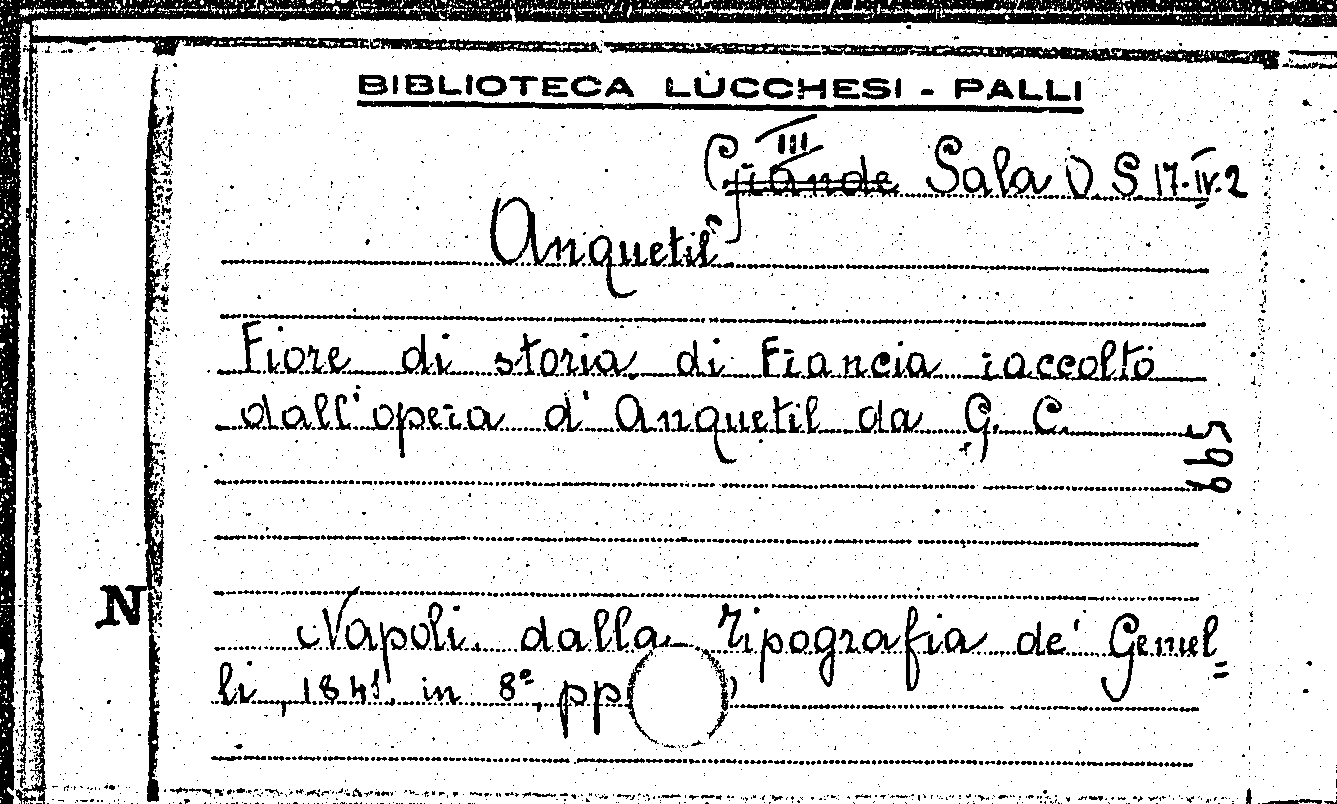 BIBLIOTECA LUCCHESI - PALLI
III
Grande Sala O. S 17. IV. 2
Anquetil
Fiore di storia di Francia raccolto
dall'opera d'Anquetil da G. C.
N
Napoli. dalla Tipografia de' Gemel=
li, 1841, in 8°, pp